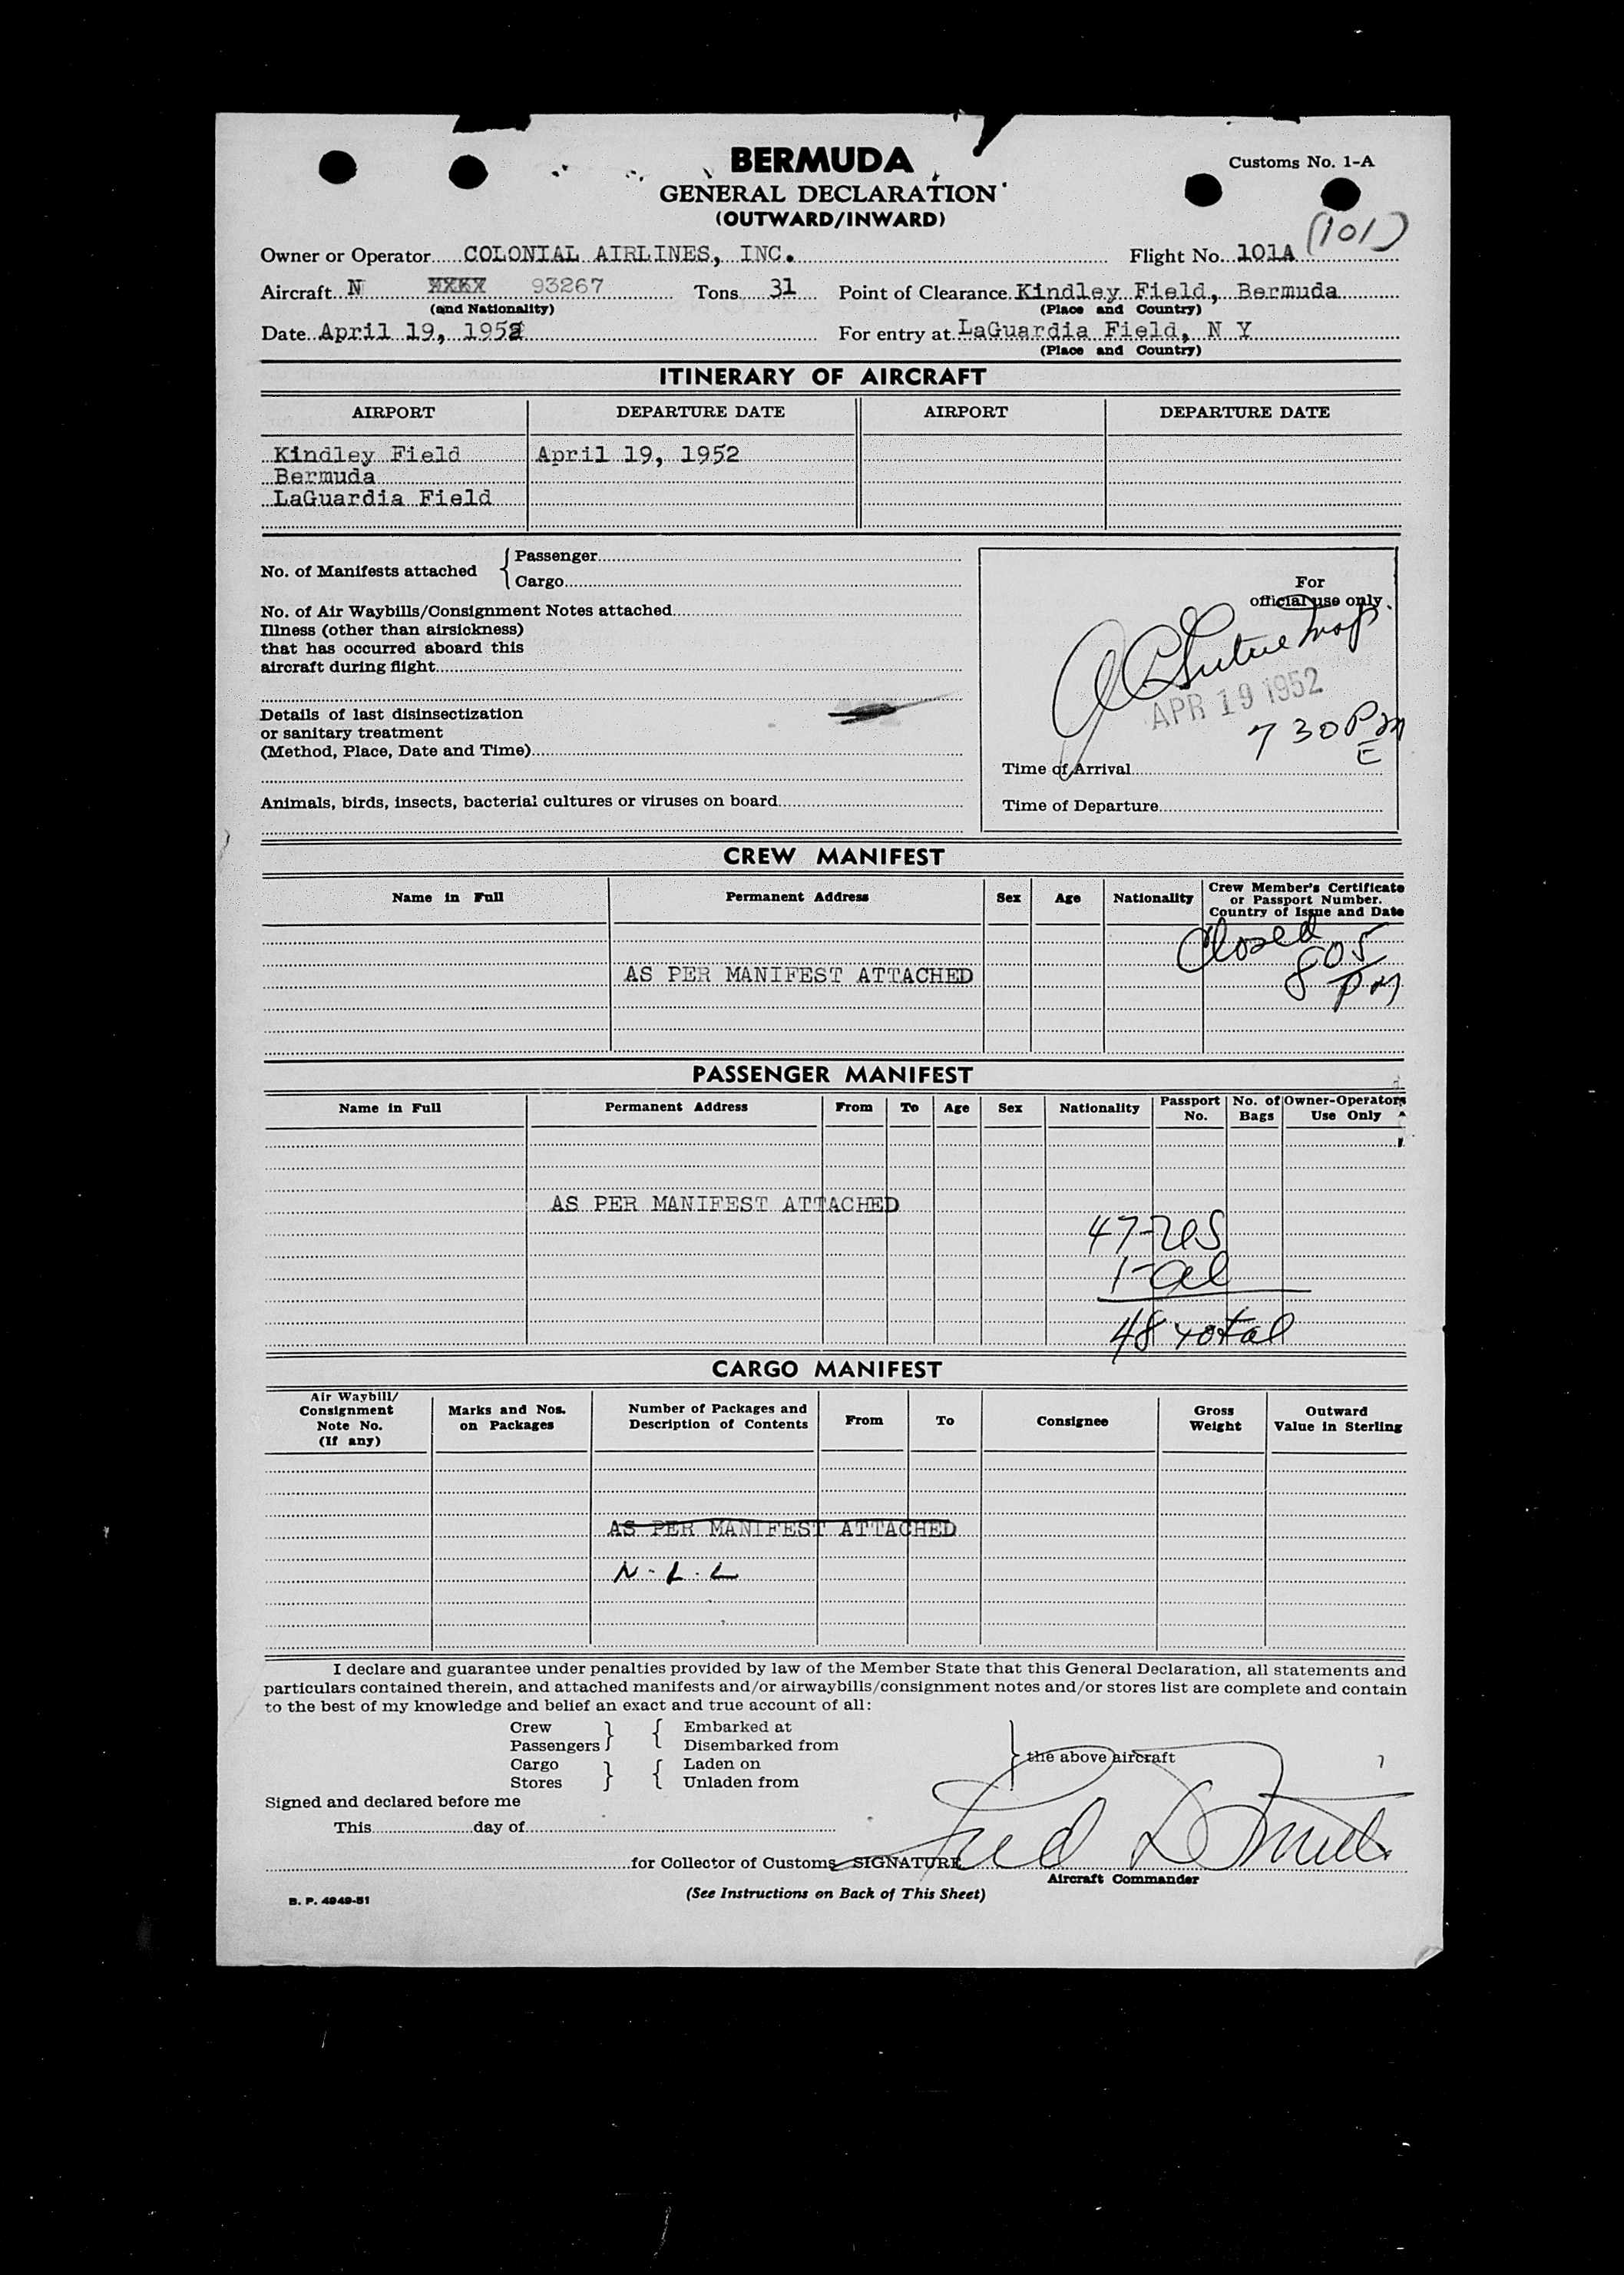 BERMUDA
Customs No. 1-A
GENERAL DECLARATION
(OUTWARD/INWARD)
(101)
Owner or Operator COLONIAL AIRLINES, INC. Flight No. 101A
Aircraft N 93267 Tons 31 Point of Clearance Kindley Field, Bermuda
(and Nationality) (Place and Country)
Date April 19, 1952 For entry at LaGuardia Field, N Y
(Place and Country)
ITINERARY OF AIRCRAFT
AIRPORT DEPARTURE DATE AIRPORT DEPARTURE DATE
Kindley Field April 19, 1952
Bermuda
LaGuardia Field
No. of Manifests attached { Passenger
Cargo
No. of Air Waybills/Consignment Notes attached
Illness (other than airsickness)
that has occurred aboard this
aircraft during flight
Details of last disinsectization
or sanitary treatment
(Method, Place, Date and Time)
Animals, birds, insects, bacterial cultures or viruses on board
For
official use only.
APR 19 1952
7 30 PM
E
Time of Arrival
Time of Departure
CREW MANIFEST
Name in Full Permanent Address Sex Age Nationality Crew Member's Certificate
or Passport Number.
Country of Issue and Date
Closed
805
PM
AS PER MANIFEST ATTACHED
PASSENGER MANIFEST
Name in Full Permanent Address From To Age Sex Nationality Passport No. No. of Bags Owner-Operators Use Only
AS PER MANIFEST ATTACHED
47-US
1-al
48 total
CARGO MANIFEST
Air Waybill/
Consignment
Note No.
(If any)
Marks and Nos.
on Packages
Number of Packages and
Description of Contents
From To Consignee
Gross
Weight
Outward
Value in Sterling
AS PER MANIFEST ATTACHED
N.I.L
I declare and guarantee under penalties provided by law of the Member State that this General Declaration, all statements and
particulars contained therein, and attached manifests and/or airwaybills/consignment notes and/or stores list are complete and contain
to the best of my knowledge and belief an exact and true account of all:
Crew } { Embarked at
Passengers Disembarked from
Cargo } { Laden on
Stores Unladen from
} the above aircraft
Signed and declared before me
This day of
for Collector of Customs SIGNATURE
Aircraft Commander
(See Instructions on Back of This Sheet)
B. P. 4949-51